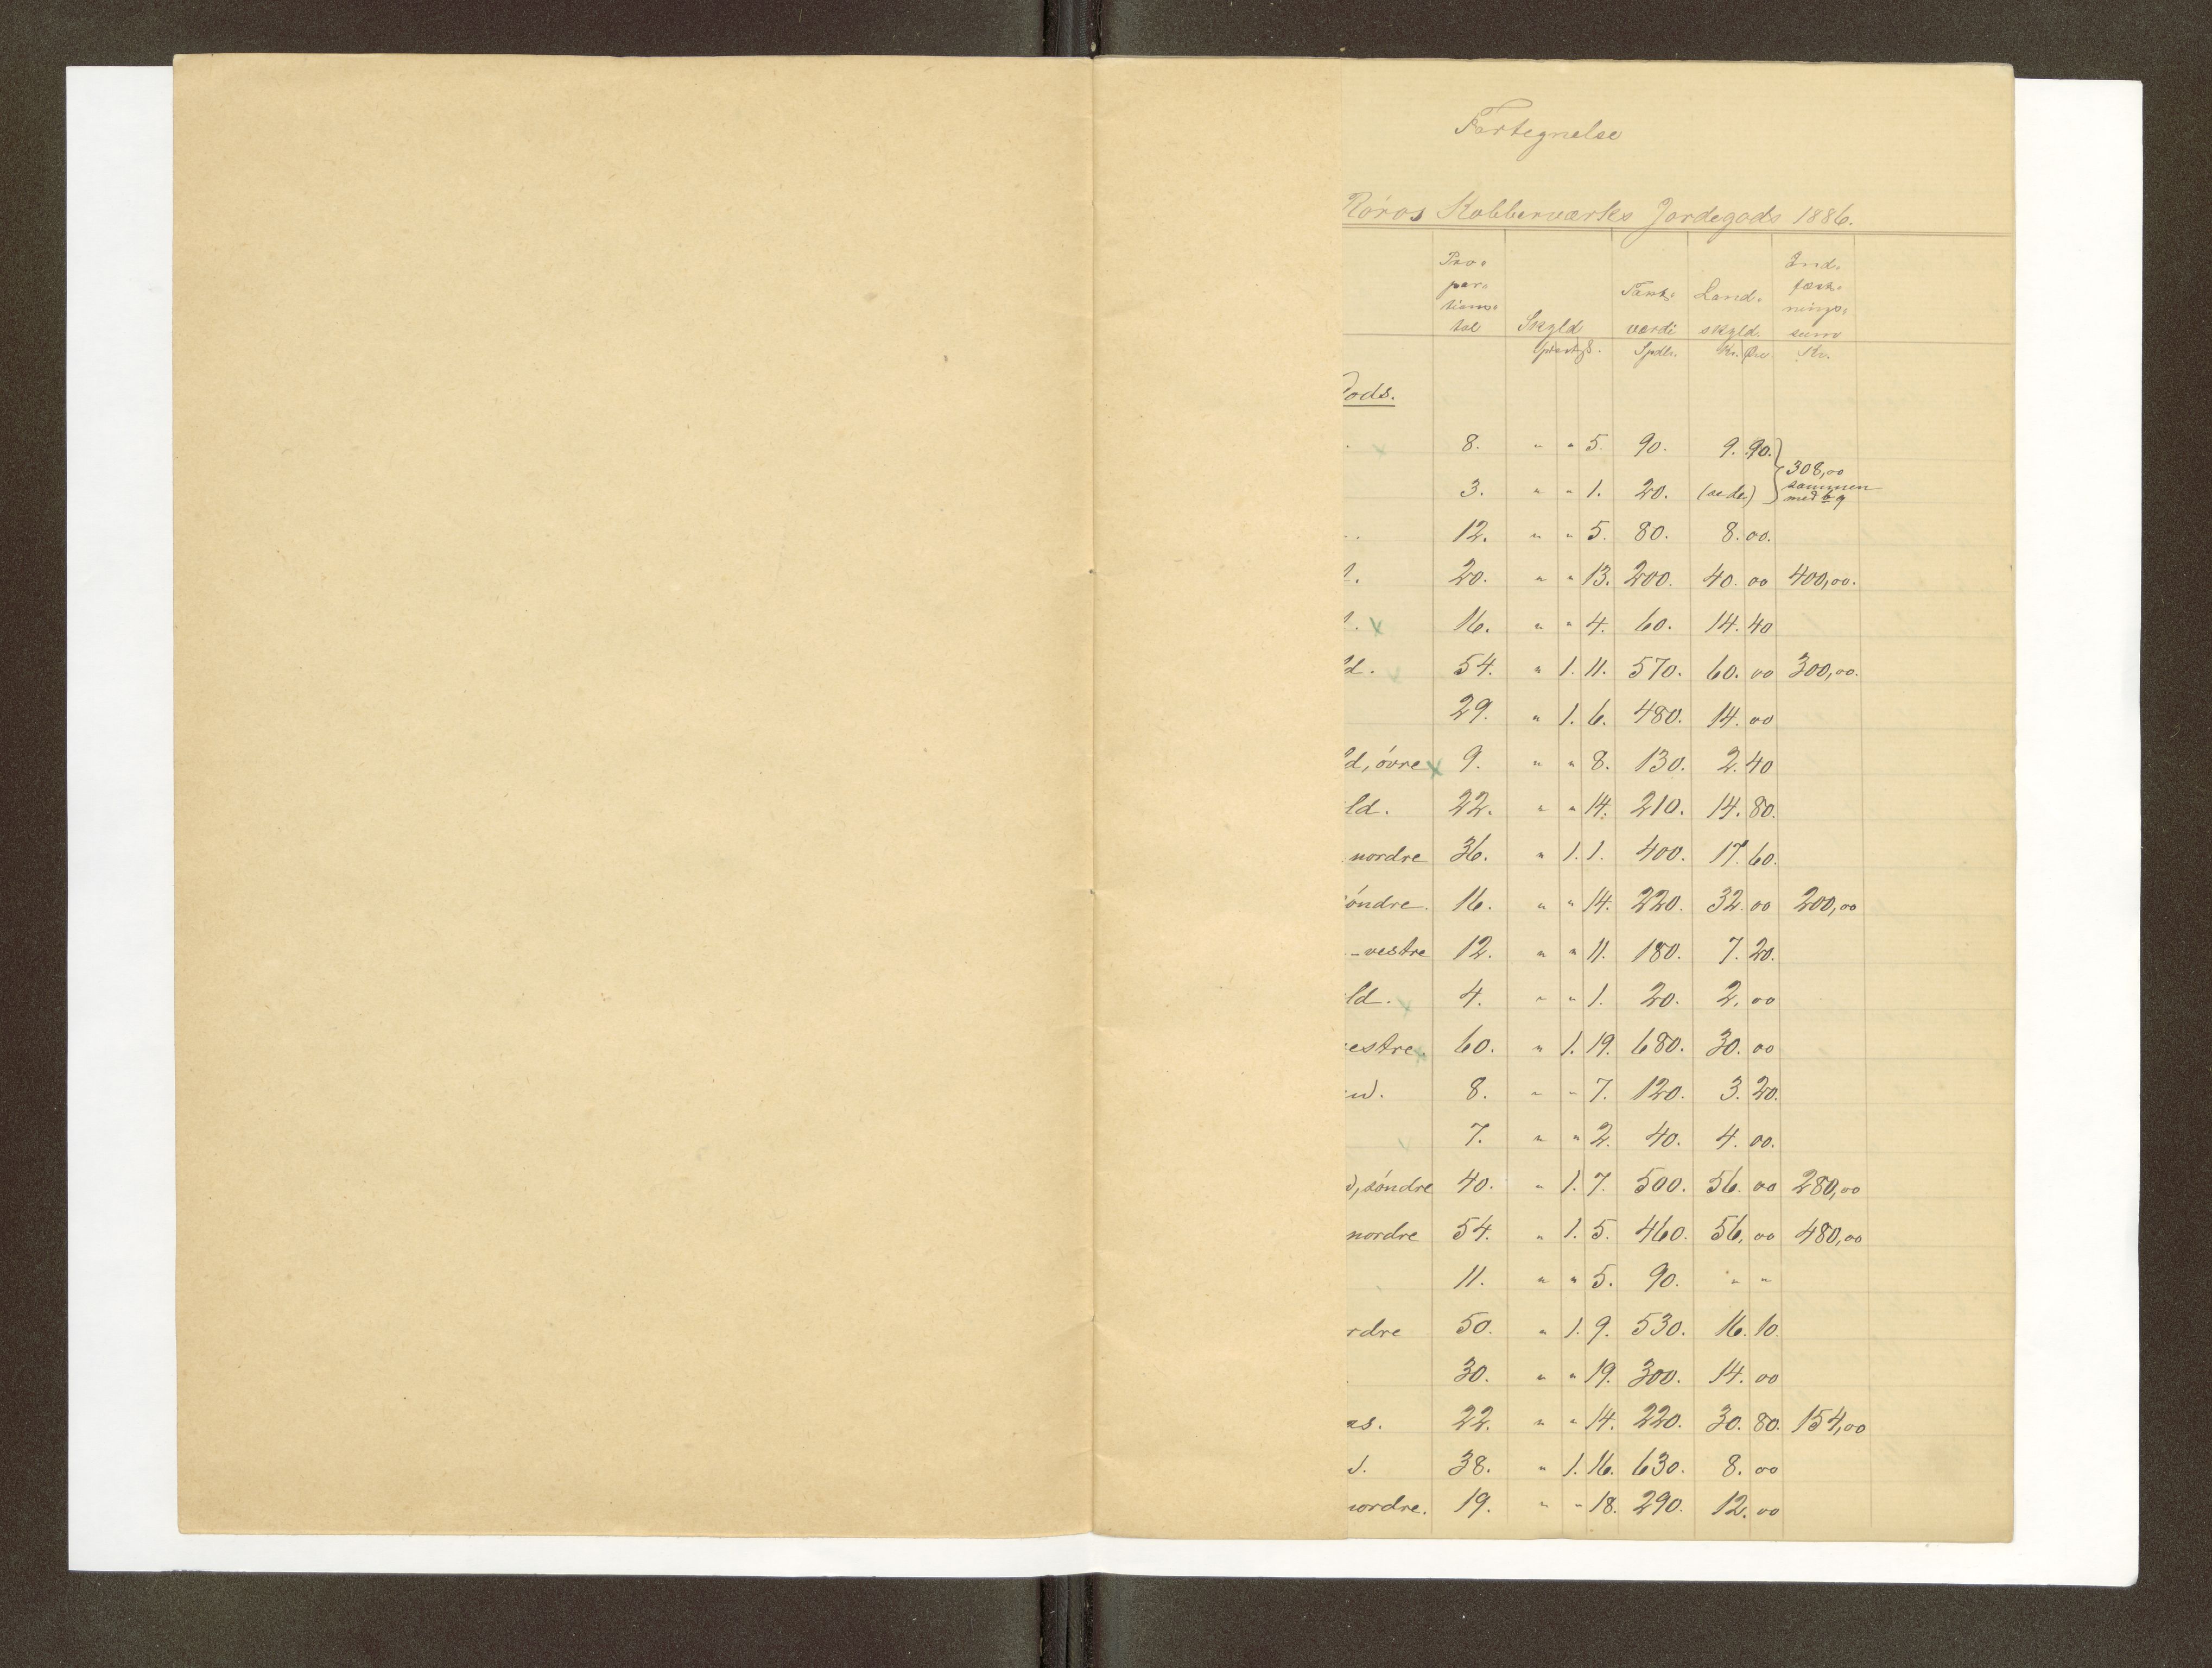 Fortegnelse
Røros Kobberværks Jordegods 1886.
Pro- por- tions- tal Skyld Taxt- værdi Land- skyld. Ind- fæst- nings- sum
Spdlr. Kr. Øre Kr.
ods.
8. " " 5. 90. 9. 90. 308,00
3. " " 1. 20. sammen med
12. " " 5. 80. 8. 00.
20. " " 13. 200. 40. 00 400,00.
16. " " 4. 60. 14. 40
ld. 54. " 1. 11. 570. 60. 00 300,00.
29. " 1. 6. 480. 14. 00
ld, óvre x 9. " " 8. 130. 2. 40
ld. 22. " " 14. 210. 14. 80.
nordre 36. " 1. 1. 400. 17. 60.
óndre. 16. " " 14. 220. 32. 00 200,00
-vestre 12. " " 11. 180. 7. 20.
ld. x 4. " " 1. 20. 2. 00
estre. x 60. " 1. 19. 680. 30. 00
8. " " 7. 120. 3. 20.
7. " " 2. 40. 4. 00.
, sóndre 40. " 1. 7. 500. 56. 00 280,00
nordre 54. " 1. 5. 460. 56. 00 480,00
11. " " 5. 90. " "
rdre 50. " 1. 9. 530. 16. 10.
30. " " 19. 300. 14. 00
as. 22. " " 14. 220. 30. 80. 154,00
38. " 1. 16. 630. 8. 00
nordre. 19. " " 18. 290. 12. 00